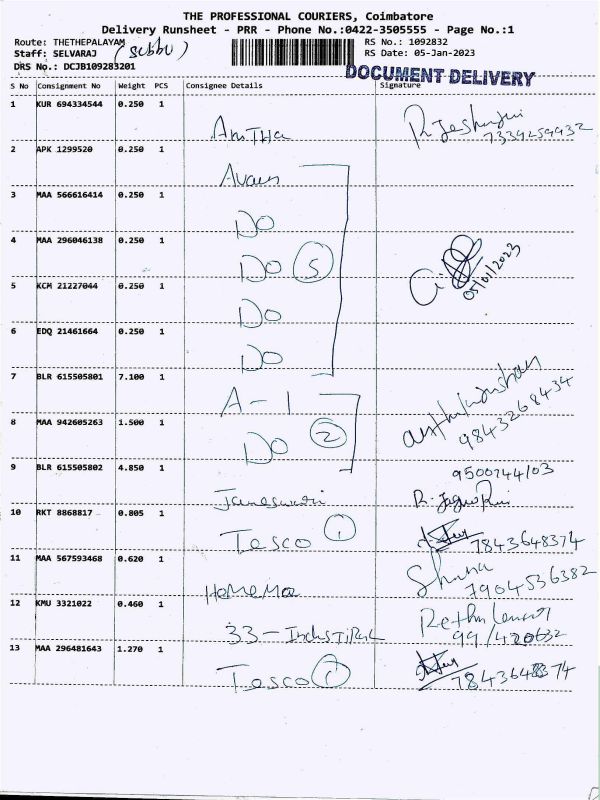 THE PROFESSIONAL COURIERS, Coimbatore
Delivery Runsheet - PRR - Phone No.:0422-3505555 - Page No.:1
Route: THETHEPALAYAM RS No.: 1092832
Staff: SELVARAJ (Subbu) RS Date: 05-Jan-2023
DRS No.: DCJB109283201 DOCUMENT DELIVERY
S No Consignment No Weight PCS Consignee Details Signature
1 KUR 694334544 0.250 1
Anitha 7339259932
2 APK 1299520 0.250 1
3 MAA 566616414 0.250 1
Do
4 MAA 296046138 0.250 1
Do 5 05/01/2023
5 KCM 21227044 0.250 1
Do
6 EDQ 21461664 0.250 1
Do
7 BLR 615505801 7.100 1
A-1
8 MAA 942605263 1.500 1 9843268434
Do 2
9 BLR 615505802 4.850 1 9500744103
10 RKT 8868817 0.805 1
Tesco 1 7843648374
11 MAA 567593468 0.620 1
7904536382
12 KMU 3321022 0.460 1
33-
13 MAA 296481643 1.270 1
Tesco 1 7843648374